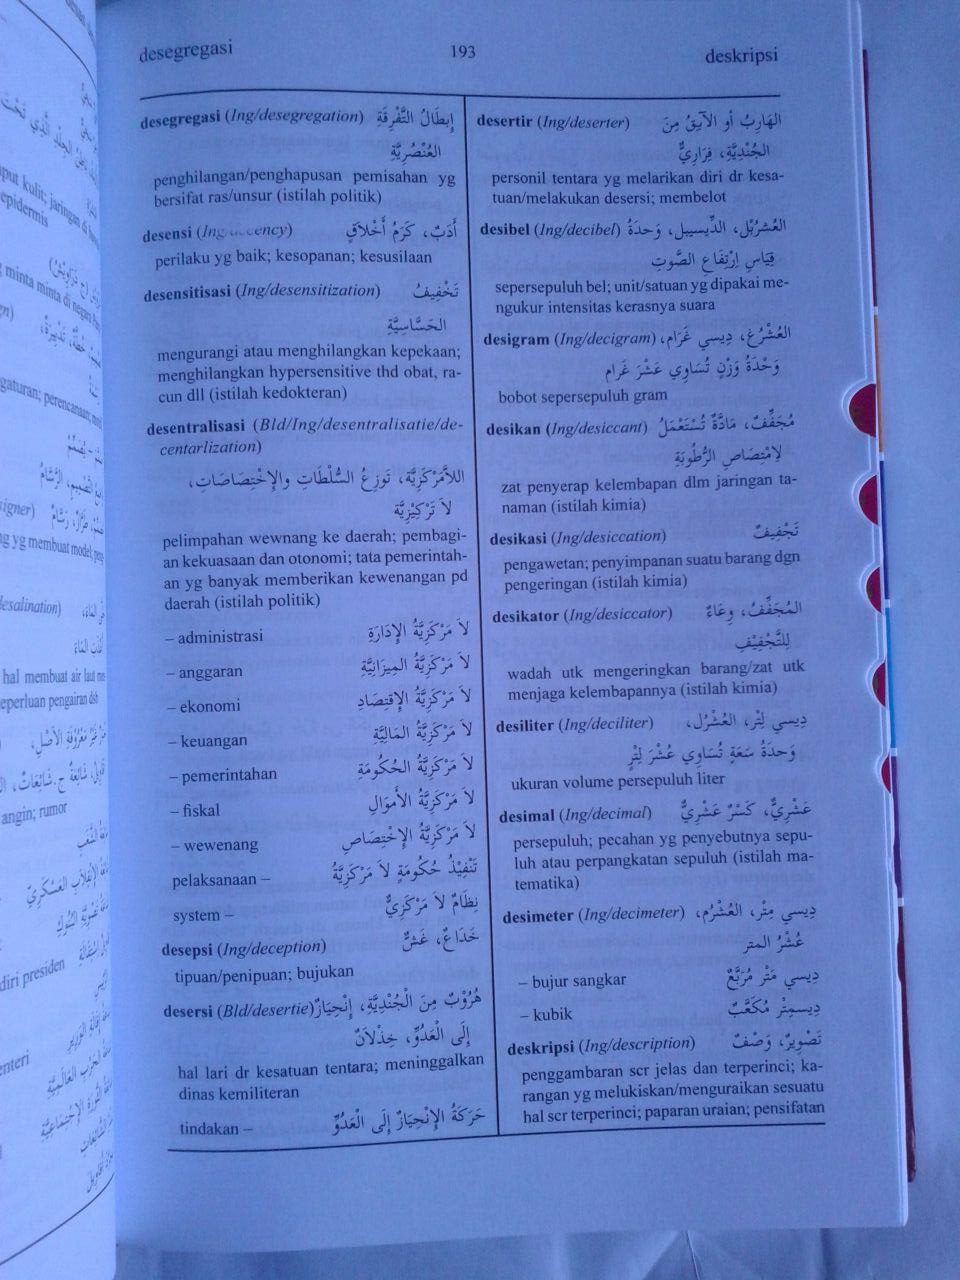 desegregasi
193
deskripsi
desegregasi (Ing/desegregation) إِبْطَالُ التَّفْرِقَةِ
العُنْصُرِيَّةِ
penghilangan/penghapusan pemisahan yg
bersifat ras/unsur (istilah politik)
desensi (Ing/decency) أَدَبٌ، كَرَمُ أَخْلَاقٍ
perilaku yg baik; kesopanan; kesusilaan
desensitisasi (Ing/desensitization) تَخْفِيفُ
الحَسَّاسِيَّةِ
mengurangi atau menghilangkan kepekaan;
menghilangkan hypersensitive thd obat, ra-
cun dll (istilah kedokteran)
desentralisasi (Bld/Ing/desentralisatie/de-
centarlization)
اللاَّمَرْكَزِيَّة، تَوزِعُ السُّلْطَاتِ والإِخْتِصَاصَاتِ،
لاَ تَرْكِيْزِيَّة
pelimpahan wewnang ke daerah; pembagi-
an kekuasaan dan otonomi; tata pemerintah-
an yg banyak memberikan kewenangan pd
daerah (istilah politik)
– administrasi لاَ مَرْكَزِيَّةُ الإِدَارَةِ
– anggaran لاَ مَرْكَزِيَّةُ المِيزَانِيَّةِ
– ekonomi لاَ مَرْكَزِيَّةُ الإِقتِصَادِ
– keuangan لاَ مَرْكَزِيَّةُ المَالِيَّةِ
– pemerintahan لاَ مَرْكَزِيَّةُ الحُكُومَةِ
– fiskal لاَ مَرْكَزِيَّةُ الأَموَالِ
– wewenang لاَ مَرْكَزِيَّةُ الإِخْتِصَاصِ
pelaksanaan – تَنْفِيْذُ حُكُومَةٍ لاَ مَرْكَزِيَّةُ
system – نِظَامٌ لاَ مَرْكَزِيٌّ
desepsi (Ing/deception) خَدَاعٌ، غَشٌّ
tipuan/penipuan; bujukan
desersi (Bld/desertie) هُرُوْبٌ مِنَ الْجُنْدِيَّةِ، إِنْحِيَازٌ
إِلَى الْعَدُوِّ، خِذْلاَنٌ
hal lari dr kesatuan tentara; meninggalkan
dinas kemiliteran
tindakan – حَرَكَةُ الإِنْحِيَازُ إِلَى الْعَدُوِّ
desertir (Ing/deserter) الهَارِبُ أو الآبِقُ مِنَ
الجُنْدِيَّةِ، فِرَارِيٌّ
personil tentara yg melarikan diri dr kesa-
tuan/melakukan desersi; membelot
desibel (Ing/decibel) العُشْرُبُل، الدِّيسيبل، وَحدَةُ
قِيَاسِ اِرْتِفَاعِ الصَّوتِ
sepersepuluh bel; unit/satuan yg dipakai me-
ngukur intensitas kerasnya suara
desigram (Ing/decigram) العُشْرُغ، دِيسي غَرَام،
وَحْدَةُ وَزْنٍ تُسَاوِي عَشْرَ غَرام
bobot sepersepuluh gram
desikan (Ing/desiccant) مُجَفِّفٌ، مَادَّةٌ تُسْتَعْمَلُ
لِامْتِصَاصِ الرُّطُوبَةِ
zat penyerap kelembapan dlm jaringan ta-
naman (istilah kimia)
desikasi (Ing/desiccation) تَجْفِيفٌ
pengawetan; penyimpanan suatu barang dgn
pengeringan (istilah kimia)
desikator (Ing/desiccator) المُجَفِّفُ، وِعَاءٌ
لِلتَّجْفِيْفِ
wadah utk mengeringkan barang/zat utk
menjaga kelembapannya (istilah kimia)
desiliter (Ing/deciliter) دِيسي لِتْر، العُشْرُل،
وَحدَةُ سَعَةٍ تُسَاوِي عُشْرَ لِتْرٍ
ukuran volume persepuluh liter
desimal (Ing/decimal) عَشْرِيٌّ، كَسْرٌ عَشْرِيٌّ
persepuluh; pecahan yg penyebutnya sepu-
luh atau perpangkatan sepuluh (istilah ma-
tematika)
desimeter (Ing/decimeter) دِيسي مِتْر، العُشْرُم،
عُشْرُ المتر
– bujur sangkar دِيسي مَتْر مُرَبَّعٌ
– kubik دِيسِمِتْر مُكَعَّبٌ
deskripsi (Ing/description) تَصْوِيرٌ، وَصْفٌ
penggambaran scr jelas dan terperinci; ka-
rangan yg melukiskan/menguraikan sesuatu
hal scr terperinci; paparan uraian; pensifatan